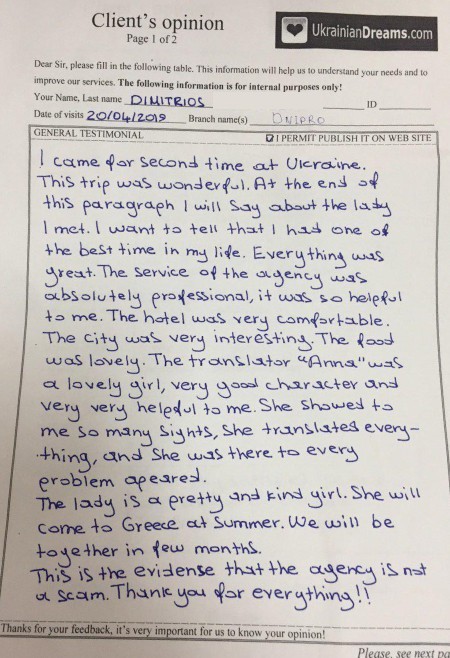 Client's opinion
Page 1 of 2
UkrainianDreams.com
Dear Sir, please fill in the following table. This information will help us to understand your needs and to
improve our services. The following information is for internal purposes only!
Your Name, Last name DIMITRIOS ID
Date of visits 20/04/2019 Branch name(s) DNIPRO
GENERAL TESTIMONIAL I PERMIT PUBLISH IT ON WEB SITE
I came for second time at Ukraine.
This trip was wonderful. At the end of
this paragraph I will say about the lady
I met. I want to tell that I had one of
the best time in my life. Everything was
great. The service of the agency was
absolutely professional, it was so helpful
to me. The hotel was very comfortable.
The city was very interesting. The food
was lovely. The translator "Anna" was
a lovely girl, very good character and
very very helpful to me. She showed to
me so many sights, she translated every-
thing, and she was there to every
problem apeared.
The lady is a pretty and kind girl. She will
come to Greece at Summer. We will be
together in few months.
This is the evidense that the agency is not
a scam. Thank you for everything!!
Thanks for your feedback, it's very important for us to know your opinion!
Please, see next pa